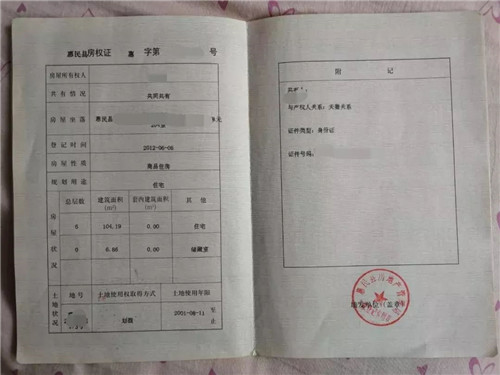 惠民县房权证 惠 字第 号
房屋所有权人
共有情况 共同共有
房屋坐落 惠民县
登记时间 2012-06-06
房屋性质 商品住房
规划用途 住宅
房屋状况 总层数 建筑面积(m²) 套内建筑面积(m²) 其他
6 104.19 0.00 住宅
6 6.86 0.00 储藏室
土地状况 地号 土地使用权取得方式 土地使用年限
划拨 2001-09-11 至 止
附 记
与产权人关系：夫妻关系
证件类型：身份证
证件号码：
填发单位(盖章)